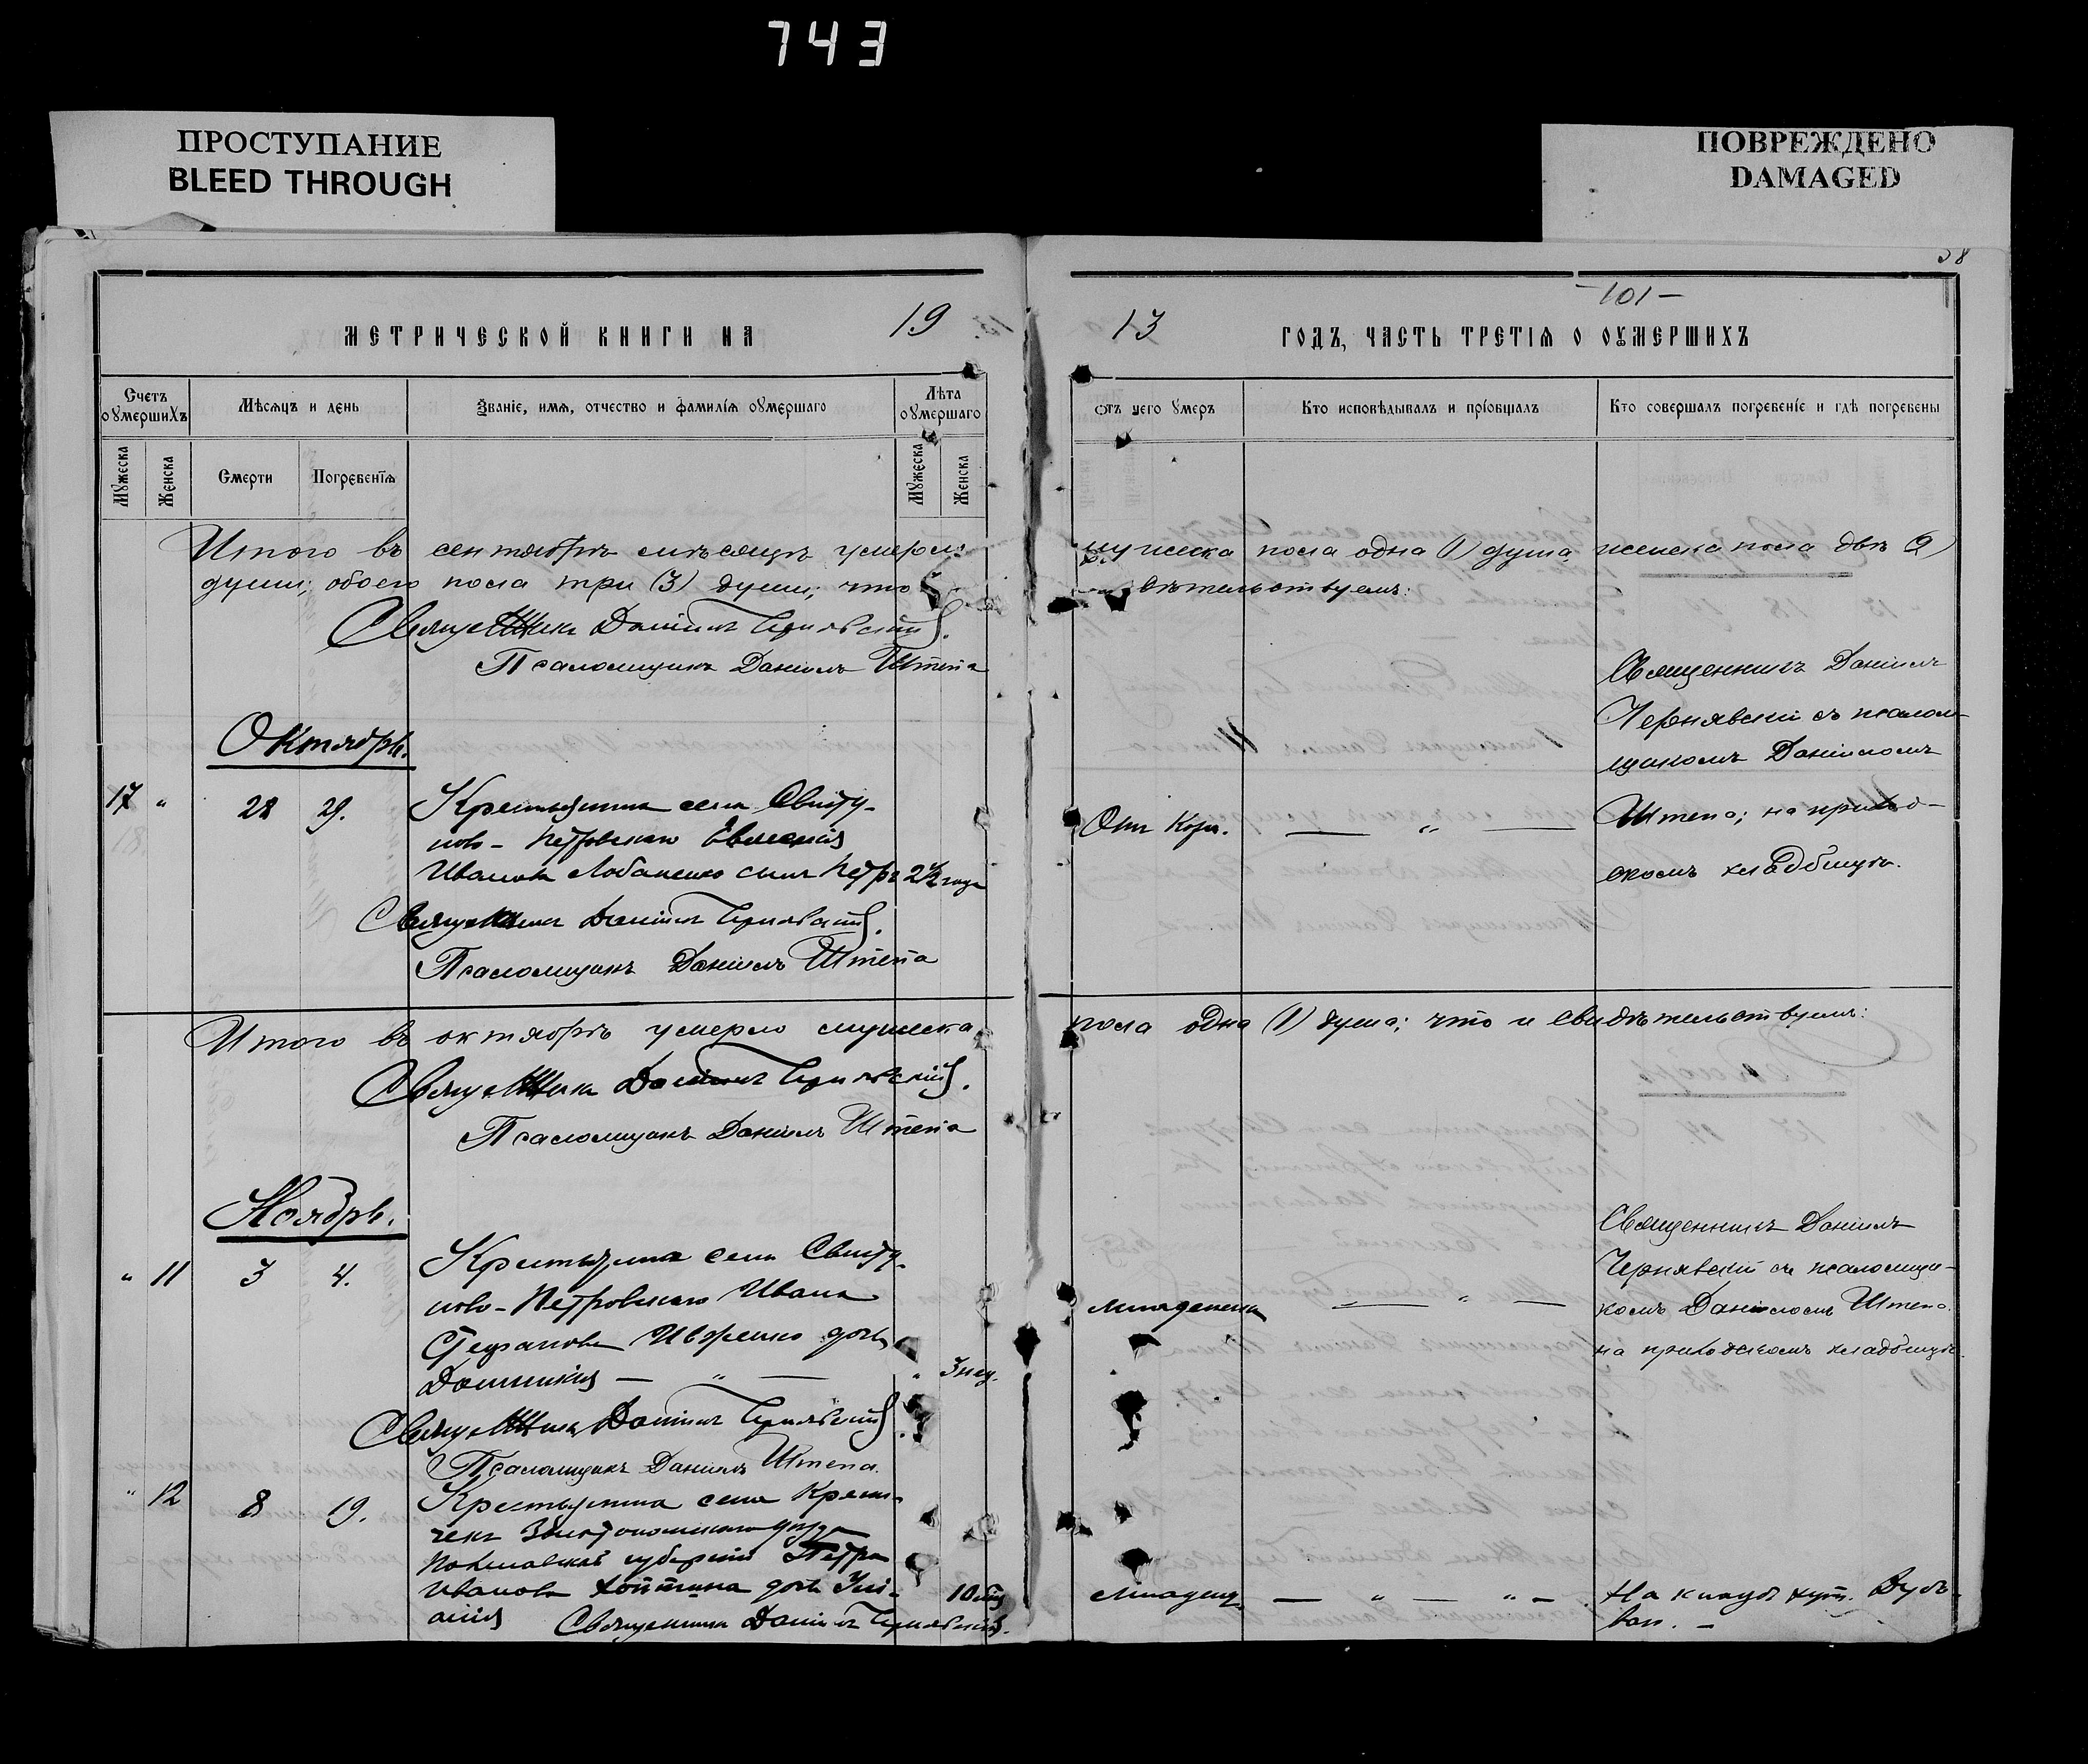 743
ПРОСТУПАНИЕ
BLEED THROUGH
ПОВРЕЖДЕНО
DAMAGED
58
-101-
МЕТРИЧЕСКОЙ КНИГИ НА 19
13 ГОДЪ, ЧАСТЬ ТРЕТІѦ О ОУМЕРШИХЪ
Счетъ оумершихъ
Мѣсяцъ и день
Званіе, имя, отчество и фамилія оумершаго
Лѣта оумершаго
Мужеска
Женска
Смерти
Погребенія
Мужеска
Женска
отъ чего умеръ
Кто исповѣдывалъ и пріобщалъ
Кто совершалъ погребеніе и гдѣ погребены
Итого въ сентябрѣ мѣсяцѣ умерло:
мужеска пола одна (1) душа, женска пола двѣ (2)
души; обоего пола три (3) души; что
свѣтельствуемъ:
Священникъ Даніилъ Чернявскій.
Псаломщикъ Даніилъ Штепа
Октябрь.
17 " 28 29.
Крестьянина села Свиту-
ново-Петровскаго Евменія
Иванова Лобаченко сынъ Петръ 2½ года
Отъ кори. — " —
Священникъ Даніилъ
Чернявскій съ псалом-
щикомъ Даніиломъ
Штепо; на приход-
скомъ кладбищѣ.
Священникъ Даніилъ Чернявскій.
Псаломщикъ Даніилъ Штепа
Итого въ октябрѣ умерло мужеска
пола одна (1) душа; что и свидѣтельствуемъ:
Священникъ Даніилъ Чернявскій.
Псаломщикъ Даніилъ Штепа
Ноябрь.
" 11 3 4.
Крестьянина села Свиту-
ново-Петровскаго Ивана
Стефанова дочь
— " — " 3 нед.
младенческ. — " —
Священникъ Даніилъ
Чернявскій съ псаломщи-
комъ Даніиломъ Штепо
на приходскомъ кладбищѣ.
Священникъ Даніилъ Чернявскій.
Псаломщикъ Даніилъ Штепа.
" 12 8 19.
Крестьянина села Кропи-
Золотоношскаго уѣзда
Полтавской губерніи Петра
Иванова дочь Улі-
анія
младенч. — " — " —
Священникъ Даніилъ Чернявскій.